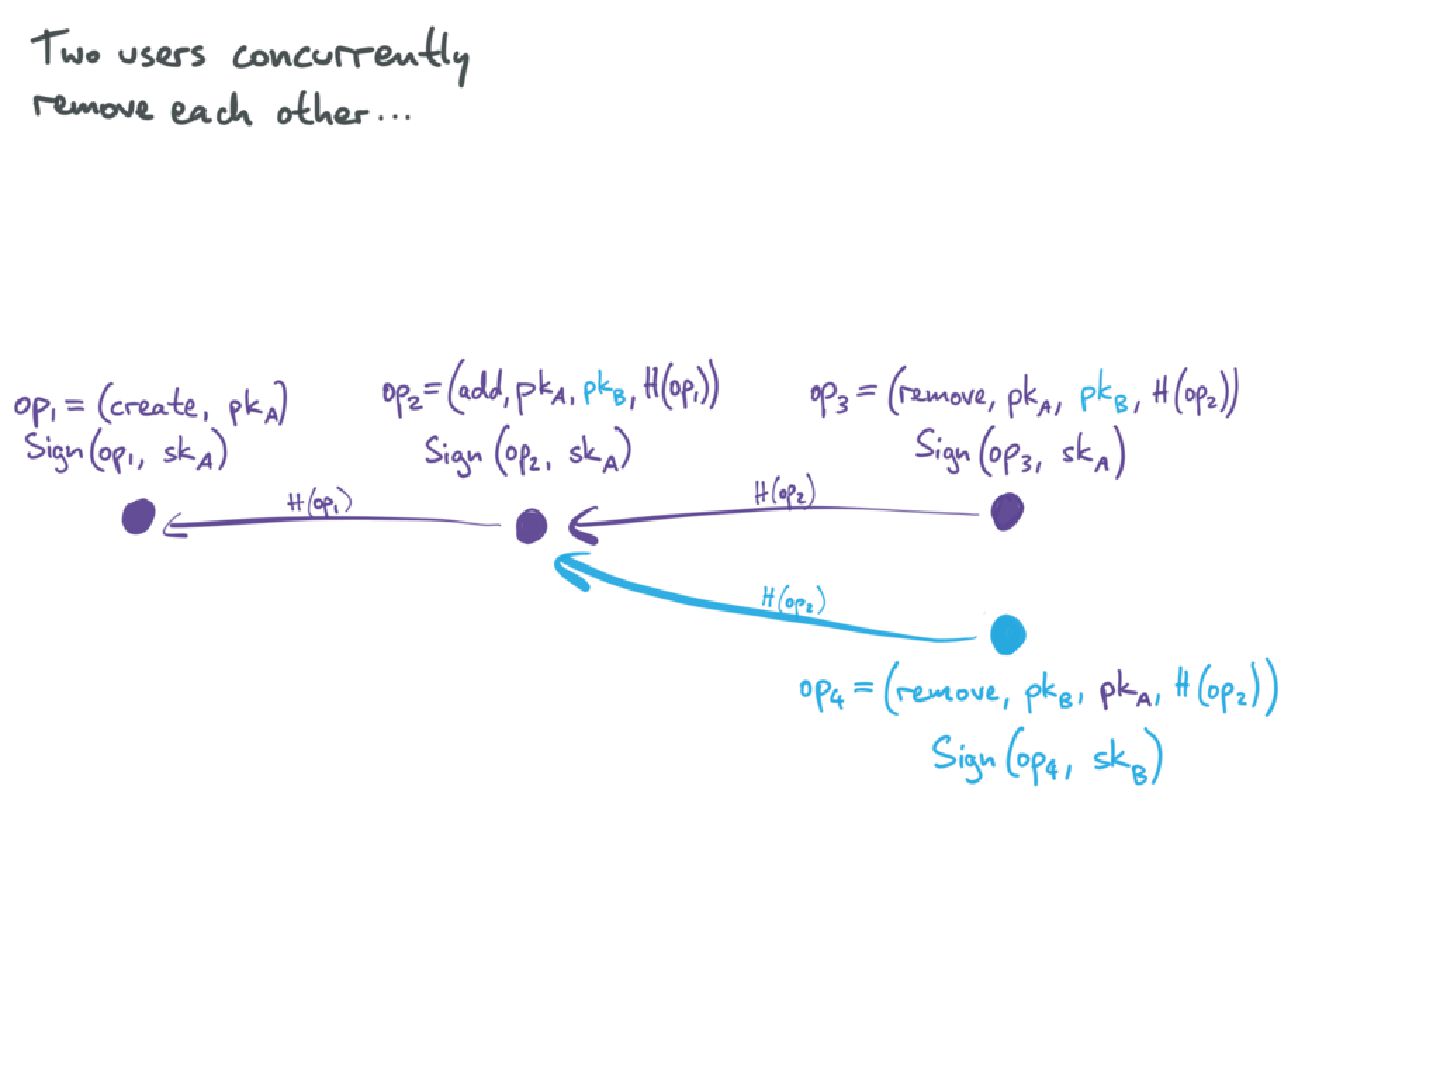 Two users concurrently
remove each other...
op₁ = (create, pk_A)
Sign(op₁, sk_A)
op₂ = (add, pk_A, pk_B, H(op₁))
Sign(op₂, sk_A)
op₃ = (remove, pk_A, pk_B, H(op₂))
Sign(op₃, sk_A)
H(op₁)
H(op₂)
H(op₂)
op₄ = (remove, pk_B, pk_A, H(op₂))
Sign(op₄, sk_B)